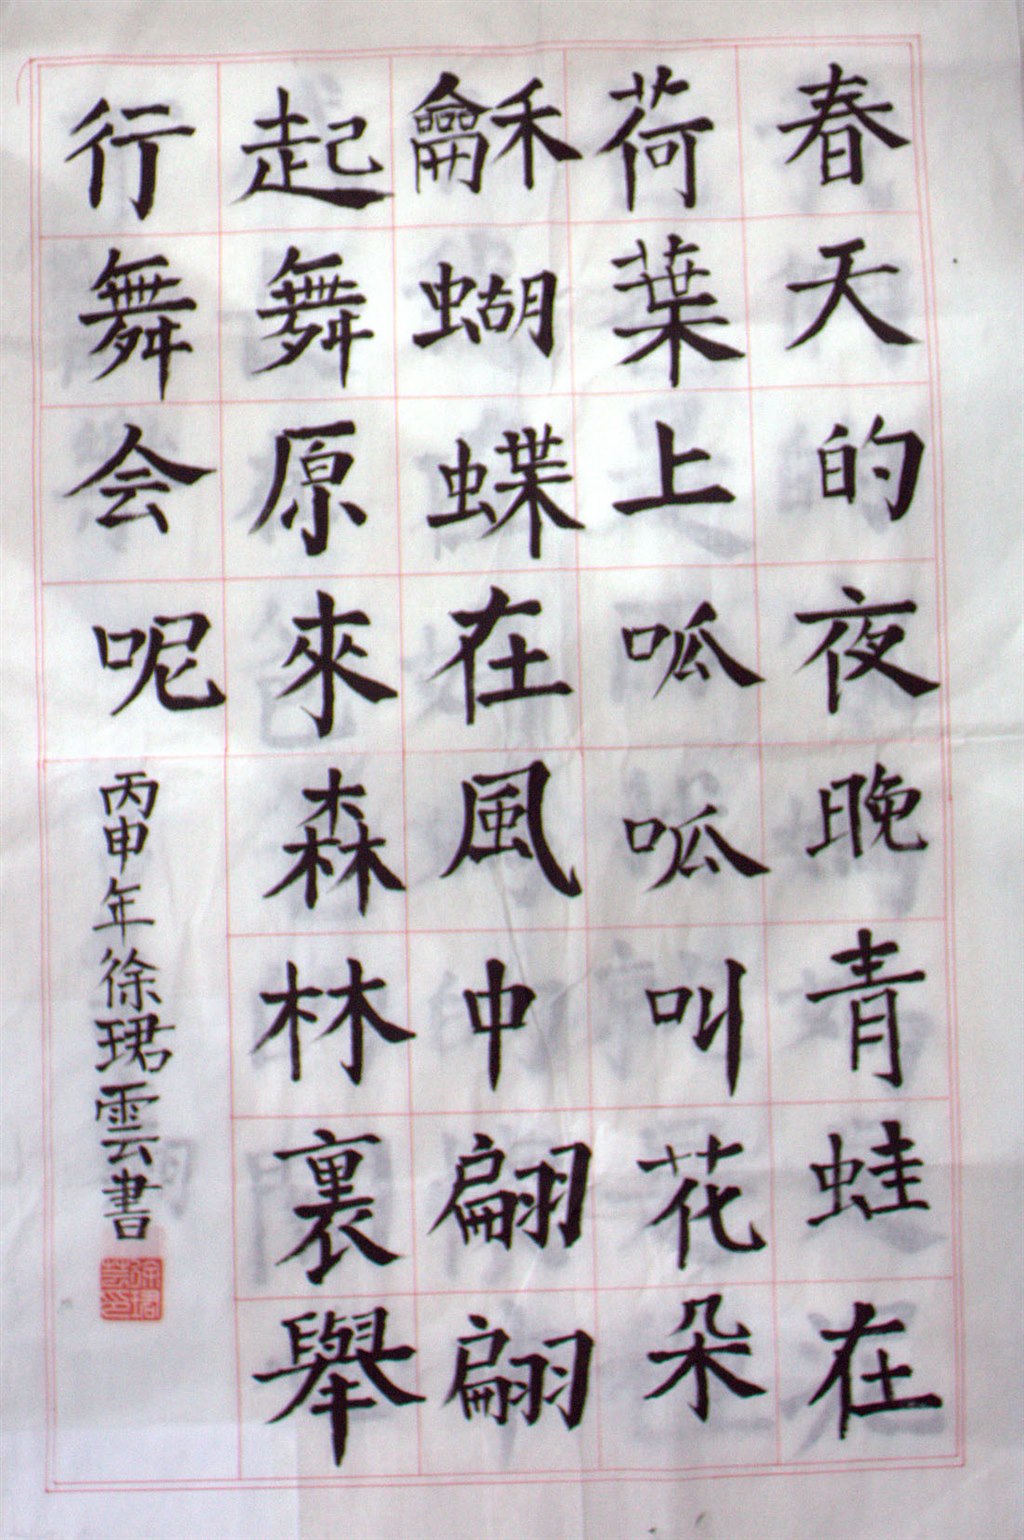 春天的夜晚青蛙在
荷葉上呱呱叫花朵
龢蝴蝶在風中翩翩
起舞原來森林裏舉
行舞会呢
丙申年徐珺雲書